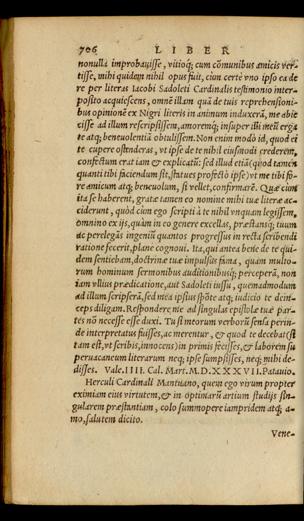 706 LIBER
nonulla improbauisse, uitioq́; cum cõmunibus amicis uer-
tisse, mihi quidem nihil opus fuit, cùm certè uno ipso ea de
re per literas Iacobi Sadoleti Cardinalis testimonio inter-
posito acquiescens, omnẽ illam quã de tuis reprehensioni-
bus opinionẽ ex Nigri literis in animum induxerã, me abie
cisse ad illum rescripsissem, amoremq́; insuper illi meũ erga
te atq; beneuolentiã obtulissem. Non enim modò id, quod ei
te cupere ostenderas, ut ipse de te nihil eiusmodi crederem,
confectum erat iam & explicatũ: sed illud etiã (quod tamen
quanti tibi faciendum sit, statues profectò ipse) ut me tibi fo-
re amicum atq; beneuolum, si uellet, confirmarẽ. Quæ cùm
ita se haberent, gratæ tamen eo nomine mihi tuæ literæ ac-
ciderunt, quòd cùm ego scripti à te nihil unquam legissem,
omnino ex ijs, quàm in eo genere excellas, præstantiq; tuum
de perelegãs ingeniũ quantos progressus in recta scribendi
ratione fecerit, plane cognoui. Ita, qui antea bene de te qui-
dem sentiebam, doctrinæ tuæ impulsus fama, quam multo-
rum hominum sermonibus auditionibusq́; perceperã, non
iam ullius prædicatione, aut Sadoleti iussu, quemadmodum
ad illum scripserã, sed mea ipsius spõte atq; iudicio te dein-
ceps diligam. Respondere me ad singulas epistolæ tuæ par-
tes nõ necesse esse duxi. Tu si morum uerborũ sensa perin-
de interpretatus fuisses, ac merentur, & quod te decebat (si
tam est, ut scribis, innocens) in primis fecisses, & laborem su
peruacaneum literarum neq; ipse sumpsisses, neq; mihi de-
disses. Vale. IIII. Cal. Mart. M.D.XXXVII. Patauio.
Herculi Cardinali Mantuano, quem ego uirum propter
eximiam eius uirtutem, & in optimarũ artium studijs sin-
gularem præstantiam, colo summopere iampridem atq; a-
mo, salutem dicito.
Vene-